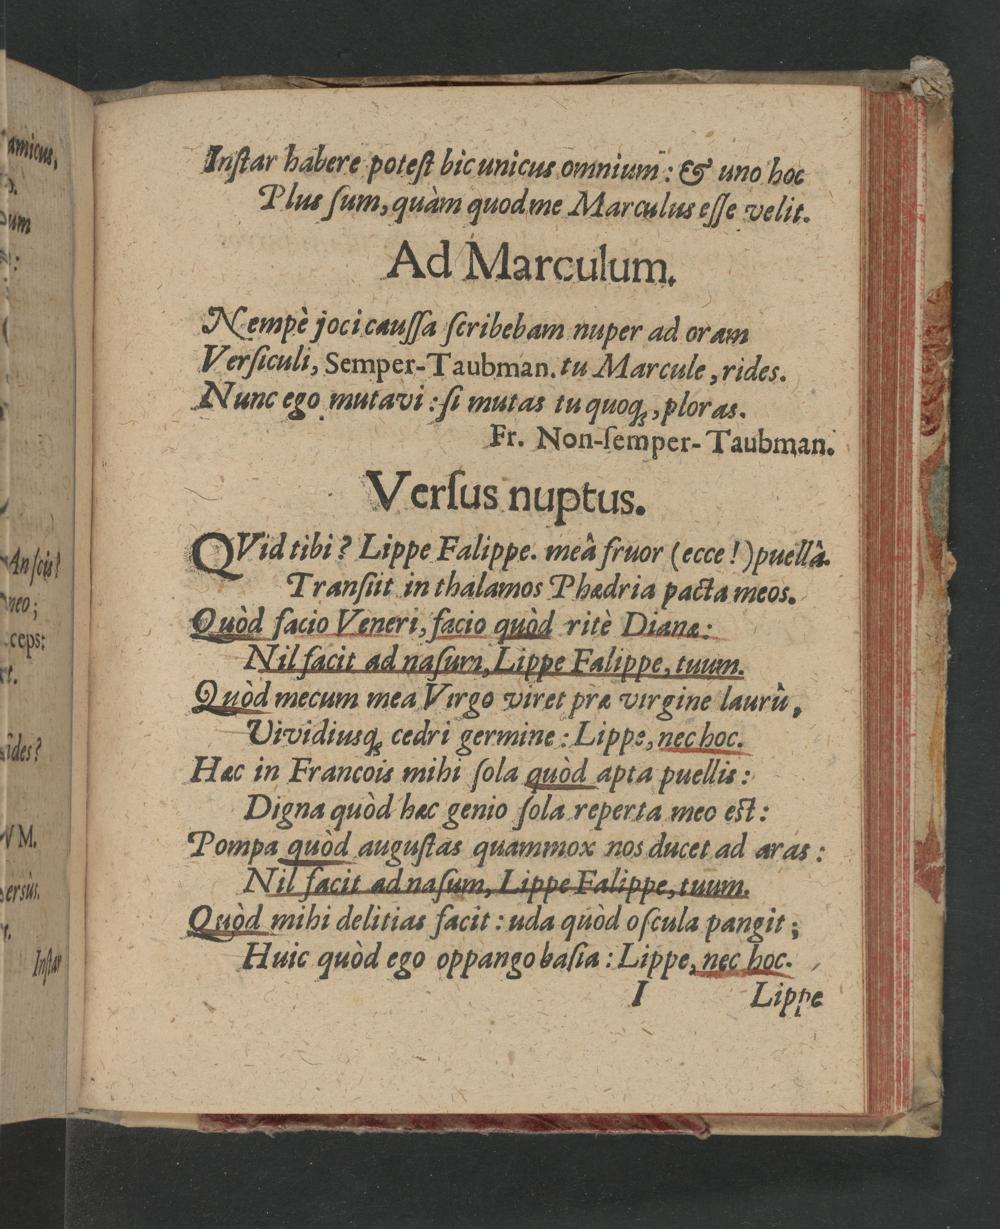 amicus,
Inſtar habere poteſt hic unicus omnium: & uno hoc
Plus ſum, quàm quod me Marculus eſſe velit.
Ad Marculum.
Nempè joci cauſſa ſcribebam nuper ad oram
Verſiculi, Semper-Taubman. tu Marcule, rides.
Nunc ego mutavi: ſi mutas tu quoq;, ploras.
Fr. Non-ſemper-Taubman.
Verſus nuptus.
QVid tibi? Lippe Falippe. meâ fruor (ecce!) puellâ.
Tranſiit in thalamos Phædria pacta meos.
Quòd facio Veneri, facio quòd ritè Dianæ:
Nil facit ad naſum, Lippe Falippe, tuum.
Quòd mecum mea Virgo viret præ virgine laurû,
Vividiusq; cedri germine: Lippe, nec hoc.
Hæc in Francois mihi ſola quòd apta puellis:
Digna quòd hæc genio ſola reperta meo eſt:
Pompa quòd auguſtas quammox nos ducet ad aras:
Nil facit ad naſum, Lippe Falippe, tuum.
Quòd mihi delitias facit: uda quòd oſcula pangit;
Huic quòd ego oppango baſia: Lippe, nec hoc.
I Lippe
An ſcis?
neo;
ceps:
ſides?
VM.
erſûs.
Inſtar